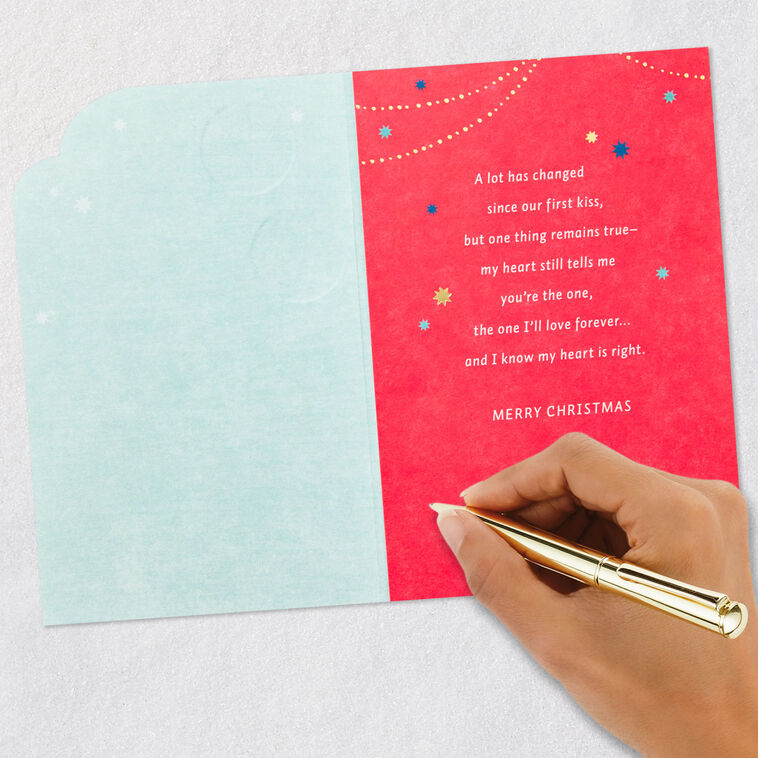 A lot has changed
since our first kiss,
but one thing remains true–
my heart still tells me
you're the one,
the one I'll love forever...
and I know my heart is right.
MERRY CHRISTMAS